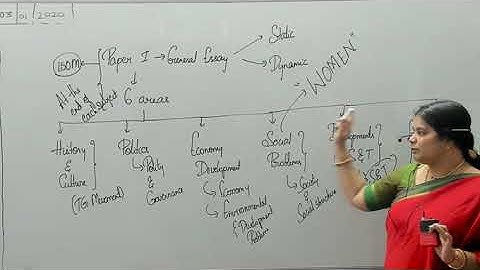 03 01 2020
150M
Paper I → General Essay
Static
Dynamic
"WOMEN"
At the
end of
each subject
6 areas
History
&
Culture
(TG Movement)
Politics
Polity
&
Governance
Economy
Development
Economy
Environmental
& Development
Problems
Social
Problems
Society
&
Social structure
S&T
S&T